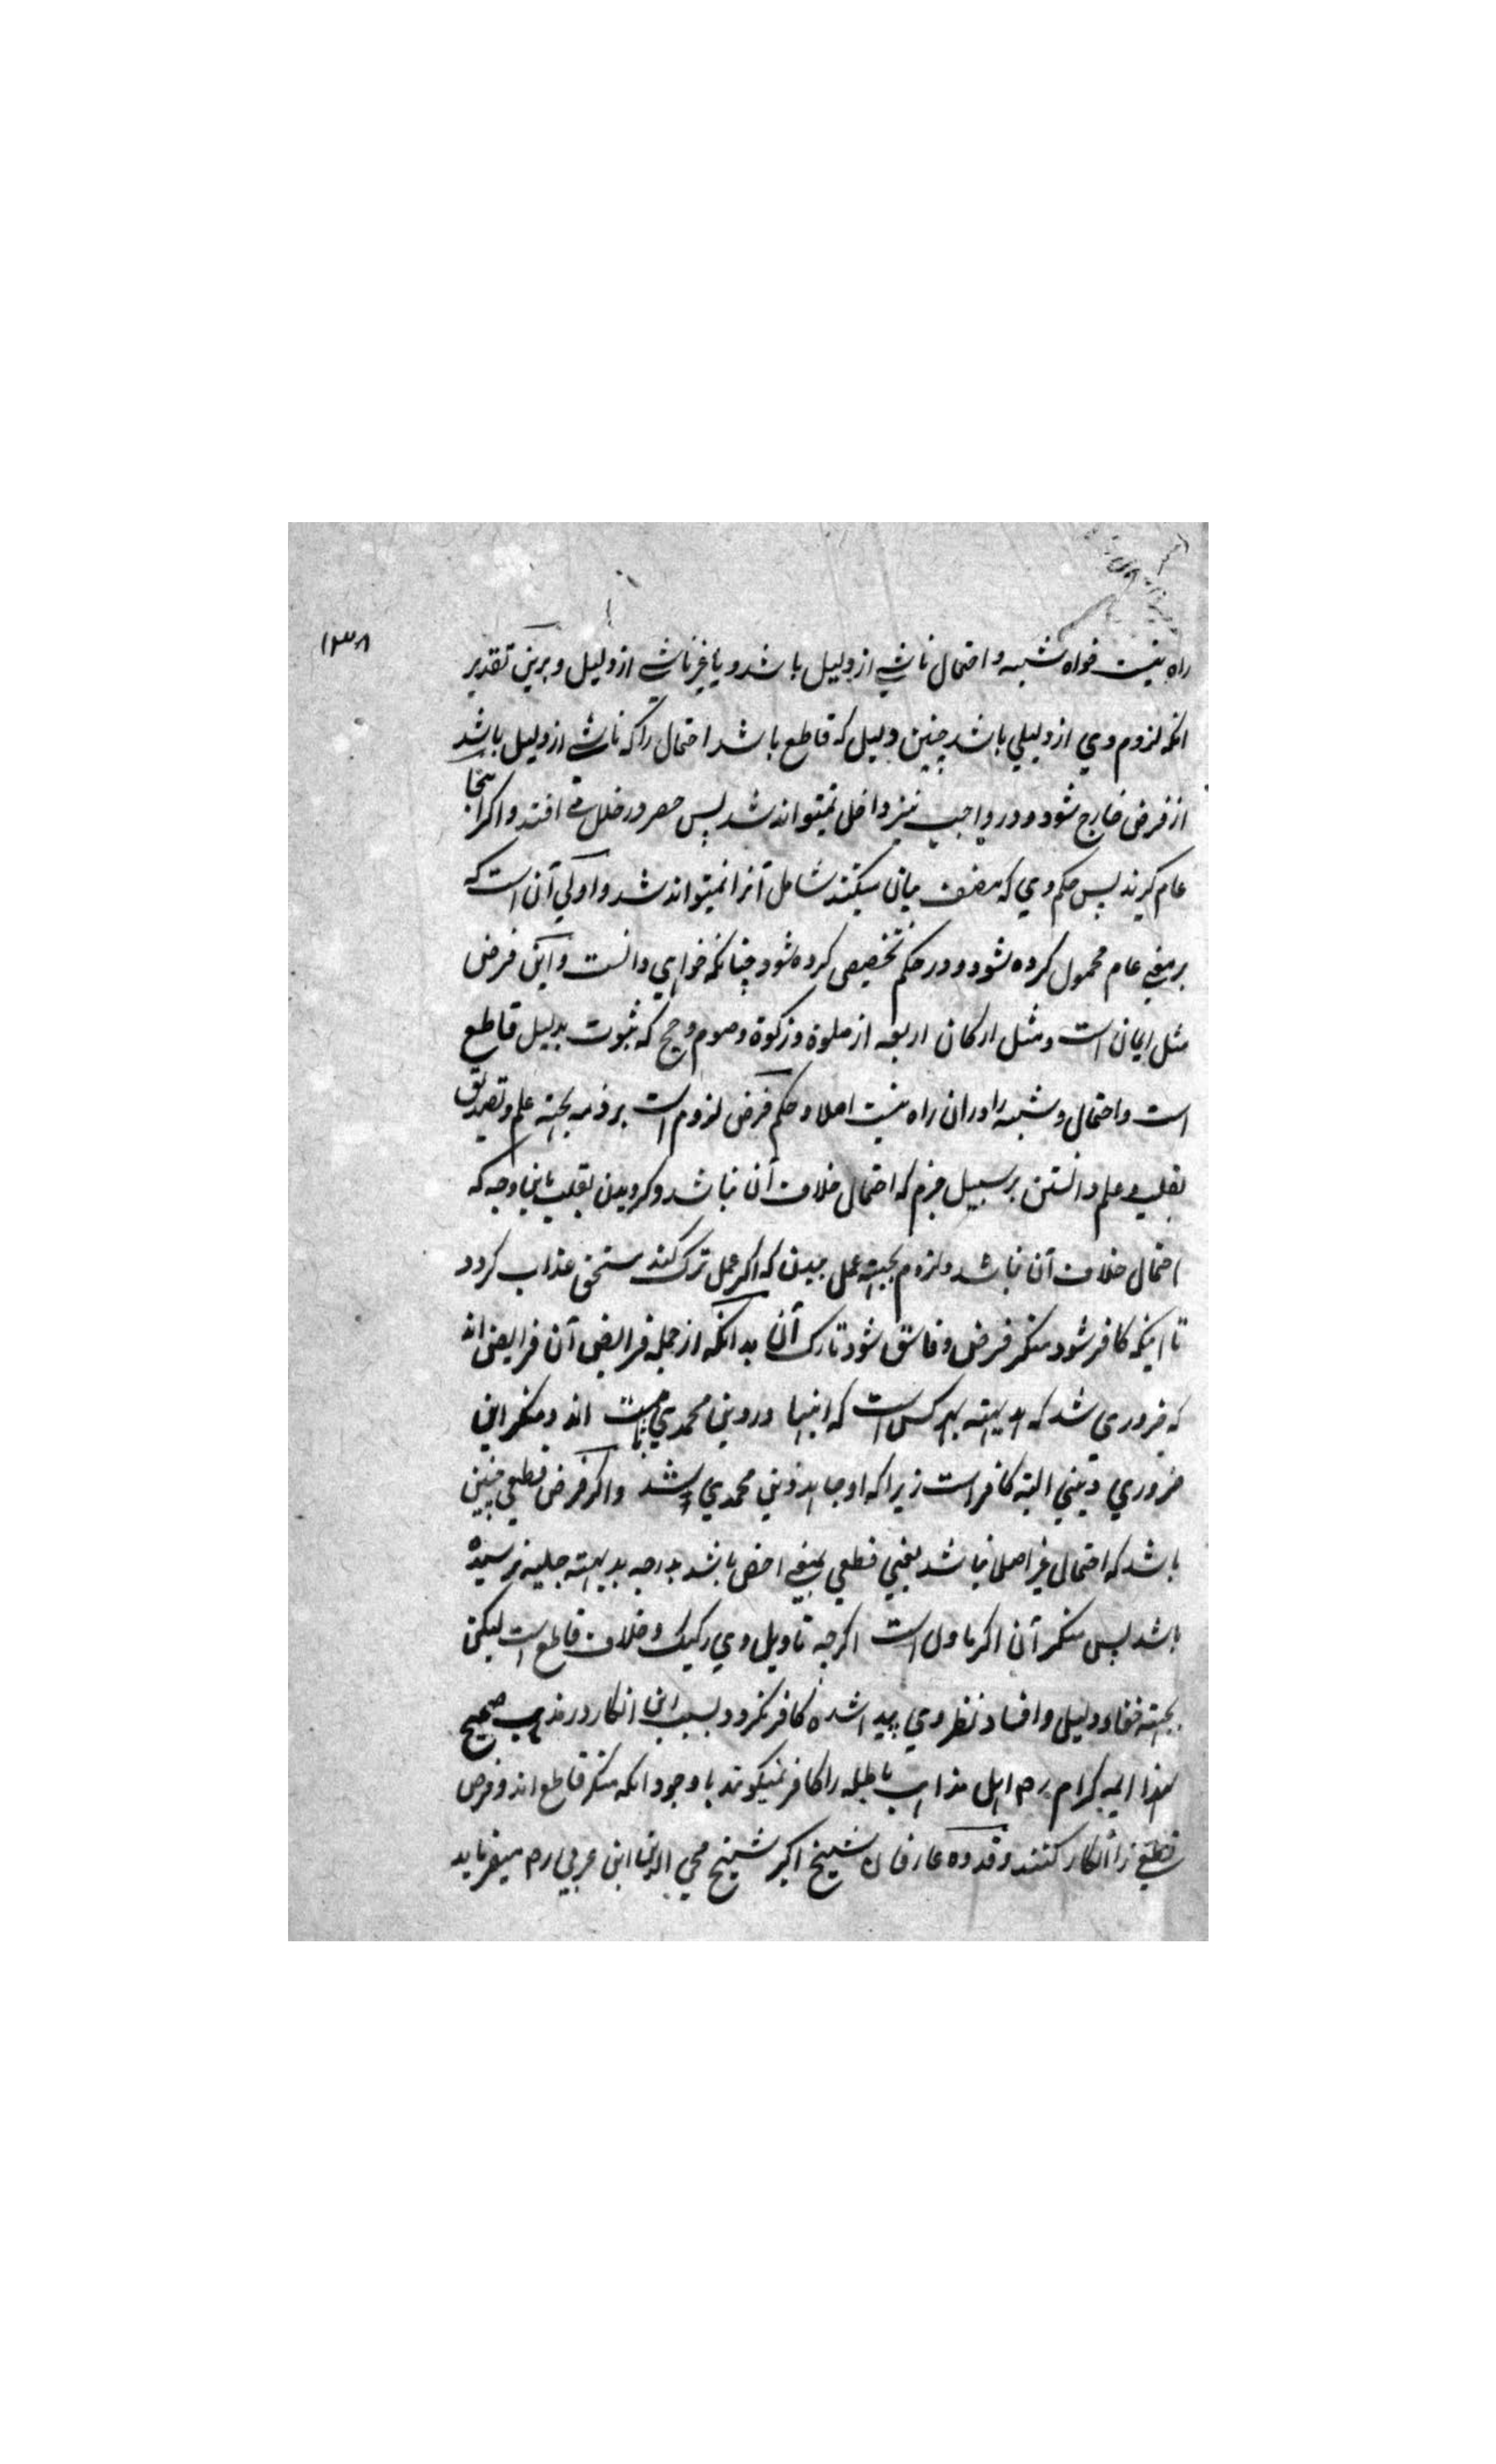 ۱۳۸
راه نیست خواه شبهه و احتمال ناشی از دلیل باشد و یا غیر ناشی از دلیل و برین تقدیر
انکه لزوم وی از دلیلی باشد چنین دلیل که قاطع باشد احتمال را که ناشی از دلیل باشد
از فرض خارج شود و در واجب نیز داخل نمیتواند شد پس حصر در خلل می افتد و اکر اینجا
عام کیرند پس حکم وی که مصنف بیان میکند شامل آنرا نمیتواند شد و اولی آن است که
بر معنی عام محمول کرده شود و در حکم تخصیص کرده شود چنانکه خواهی دانست و این فرض
مثل ایمان است و مثل ارکان اربعه از صلوة و زکوة و صوم و حج که ثبوت بدلیل قاطع
است و احتمال و شبهه را در ان راه نیست اصلا و حکم فرض لزوم است بر ذمه بجهته علم و تصدیق
بقلب و علم دانستن بر سبیل جزم که احتمال خلاف آن نباشد و کرویدن بقلب باین وجه که
احتمال خلاف آن نباشد و لزوم بجهته عمل ببدن که اکر عمل ترک کند مستحق عذاب کردد
تا اینکه کافر شود منکر فرض و فاسق شود تارک آن بدانکه از جمله فرایض آن فرایض اند
که ضروری شد که بدیهته بهر کس است که اینها در دین محمدی ثابت اند و منکر این
ضروری دینی البته کافر است زیرا که او جاحد دین محمدی شد و اکر فرض قطعی چنین
باشد که احتمال غیر اصلا نباشد یعنی قطعی بمعنی اخص باشد بدرجه بدیهته جلیه نرسیده
باشد پس منکر آن اکر ماول است اکرچه تاویل وی رکیک و خلاف قاطع است لیکن
بجهته خفاء دلیل و افساد نظر وی پیدا شده کافر نکردد بسبب این انکار در مذهب صحیح
لهذا ایمه کرام رح اهل مذاهب باطله را کافر نمیکویند با وجود انکه منکر قاطع اند و فرض
قطعی را انکار کنند و قدوه عارفان شیخ اکبر شیخ محی الدین ابن عربی رح میفرماید